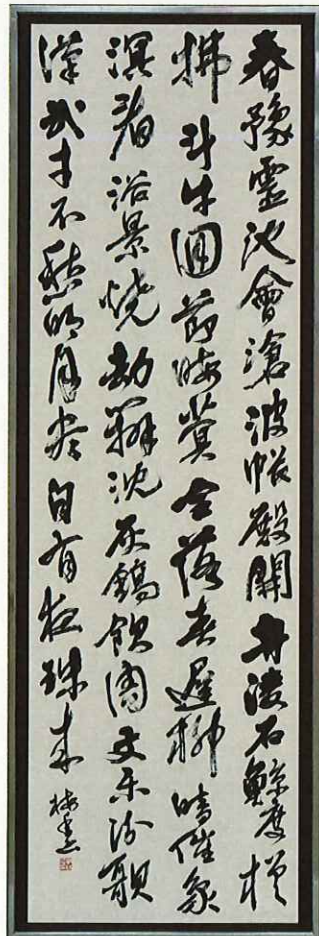 春豫靈池會滄波帳殿開舟淩石鯨度槎
拂斗牛回節晦蓂全落春遲柳暗催象
溟看浴景燒劫辨沈灰鎬飲周文樂汾歌
漢武才不愁明月尽自有夜珠来